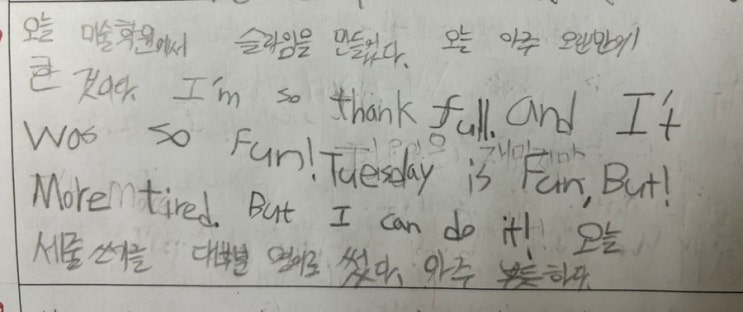 오늘 미술학원에서 슬라임을 만들었다. 오늘 아주 오랜만에
한 것이다. I'm so thank full. and It
Was so Fun! Tuesday is Fun, But!
More tired. But I can do it! 오늘
세줄 쓰기를 대부분 영어로 썼다. 아주 뿌듯하다.